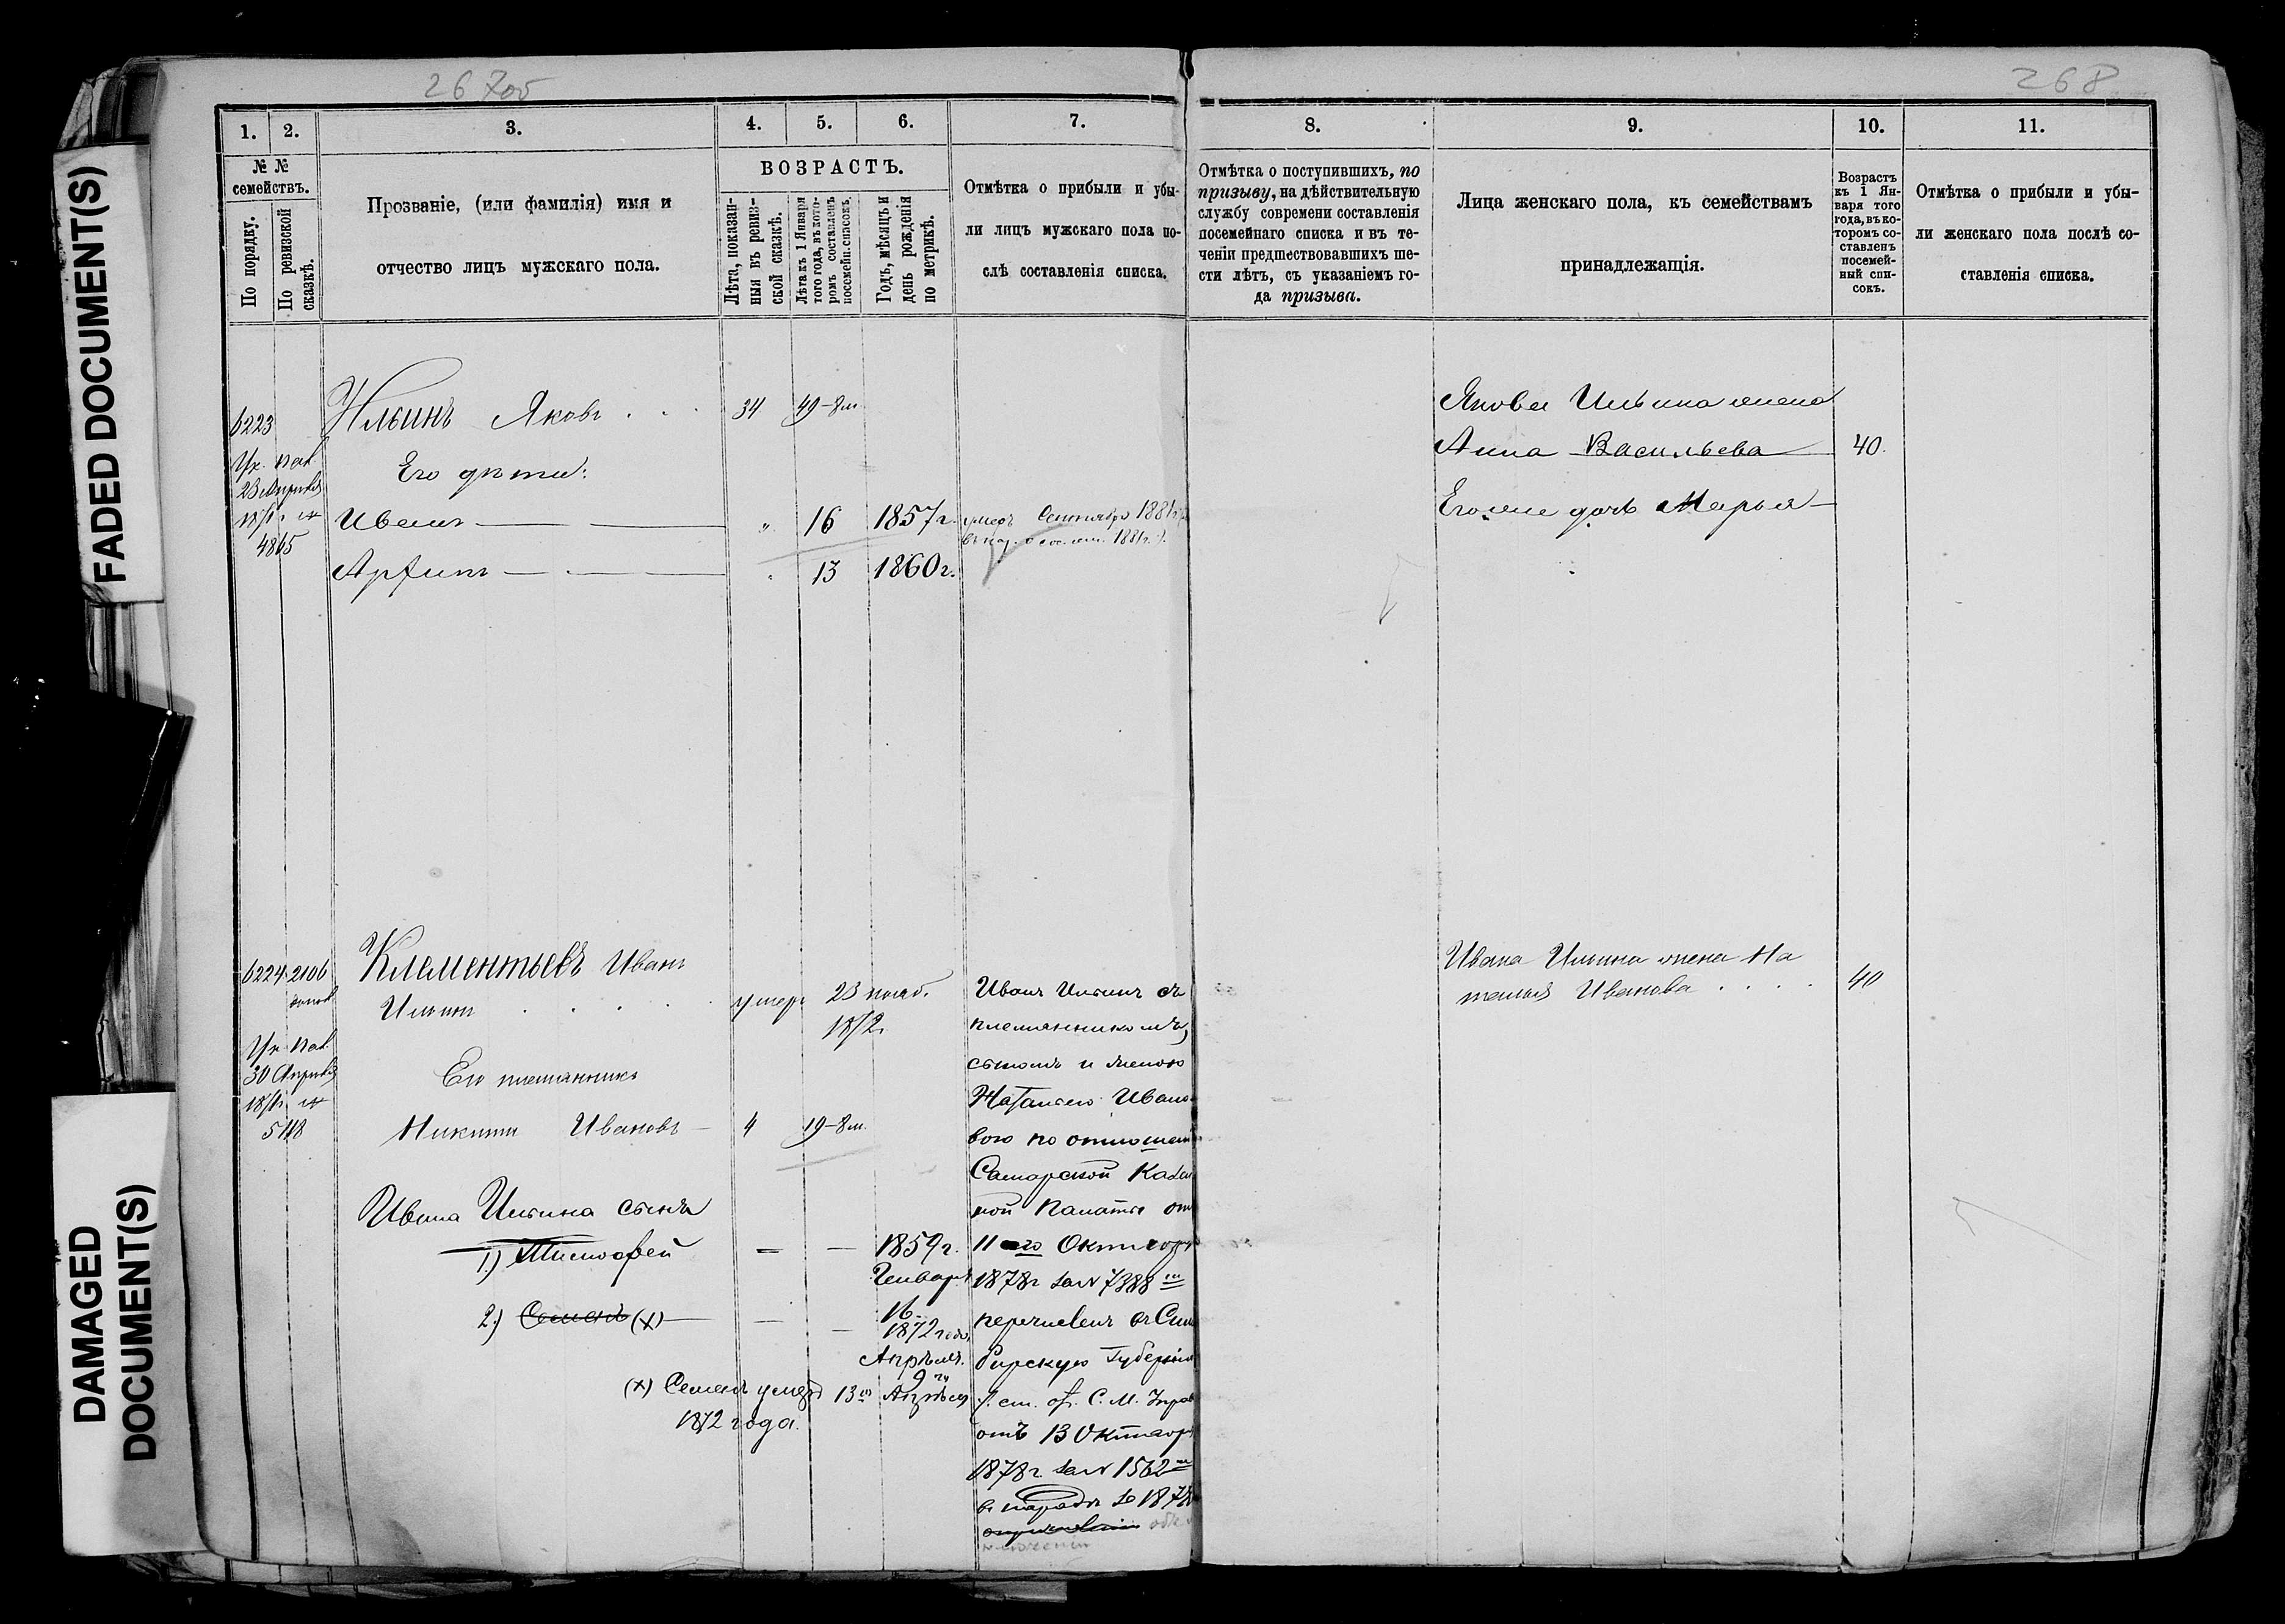 267об
268
FADED DOCUMENT(S)
DAMAGED DOCUMENT(S)
1. 2. 3. 4. 5. 6. 7. 8. 9. 10. 11.
№ № семействъ.
По порядку.
По ревизской сказкѣ.
Прозваніе, (или фамилія) имя и
отчество лицъ мужскаго пола.
ВОЗРАСТЪ.
Лѣта, показан-
ныя въ ревиз-
ской сказкѣ.
Лѣта къ 1 Января
того года, въ кото-
ромъ составленъ
посемейн. списокъ.
Годъ, мѣсяцъ и
день рожденія
по метрикѣ.
Отмѣтка о прибыли и убы-
ли лицъ мужскаго пола по-
слѣ составленія списка.
Отмѣтка о поступившихъ, по
призыву, на дѣйствительную
службу современи составленія
посемейнаго списка и въ те-
ченіи предшествовавшихъ ше-
сти лѣтъ, съ указаніемъ го-
да призыва.
Лица женскаго пола, къ семействамъ
принадлежащія.
Возрастъ
къ 1 Ян-
варя того
года, въ ко-
торомъ со-
ставленъ
посемей-
ный спи-
сокъ.
Отмѣтка о прибыли и убы-
ли женскаго пола послѣ со-
ставленія списка.
6223 Ильинъ Яковъ 34 49-8м.
Ук. Пал.
23 Апрѣля
4865
Его дѣти:
Иванъ " 16 1857г. умеръ Сентября 1881г.
13 1860г.
Якова Ильина жена
Анна Васильева 40.
Его же дочь Марья
6224 2106 Клементьевъ Иванъ
Ильинъ умеръ 23 нояб.
1872.
Ук. Пал.
30 Апрѣля
5118
Его племянникъ
Никита Ивановъ 4 19-8м.
Ивана Ильина сынъ
1.) Тимофей — — 1859г.
Генваря
16.
2.) Семенъ (х) — — 1872 года
Апрѣля
9го
(х) Семенъ умеръ 13го Апрѣля
1872 года.
Иванъ Ильинъ съ
племянникомъ,
сыномъ и женою
Наталiею Ивано-
вою по отношен.
Самарской Казен
ной Палаты отъ
11го Октября
1878г за № 7388
перечисленъ въ Сим
бирскую Губернію
отъ 13 Октября
1878г. за № 1562
Ивана Ильина жена На
талья Иванова 40